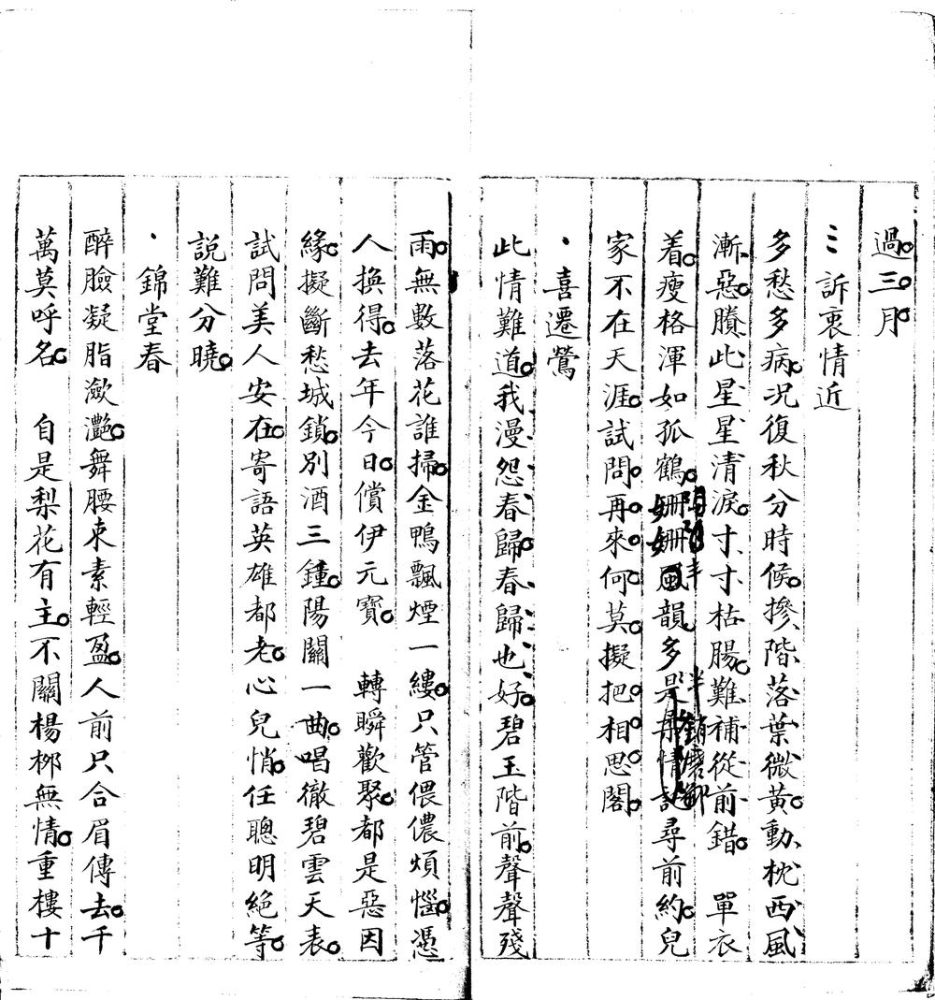 過三月
訴衷情近
多愁多病況復秋分時候摻階落葉微黃動枕西風
漸惡賸此星星清淚寸寸枯腸難補從前錯 單衣
着瘦格渾如孤鶴姍姍風韻多是尋前約兒
家不在天涯試問再來何莫擬把相思閣
喜遷鶯
此情難道我漫怨春歸春歸也好碧玉階前聲聲殘
雨無數落花誰掃金鴨飄煙一縷只管偎儂煩惱憑
人換得去年今日償伊元寶 轉瞬歡聚都是惡因
緣擬斷愁城鎖別酒三鍾陽關一曲唱徹碧雲天表
試問美人安在寄語英雄都老心兒悄任聰明絕等
説難分曉
錦堂春
醉臉凝脂瀲灔舞腰束素輕盈人前只合眉傳去千
萬莫呼名 自是梨花有主不關楊栁無情重樓十